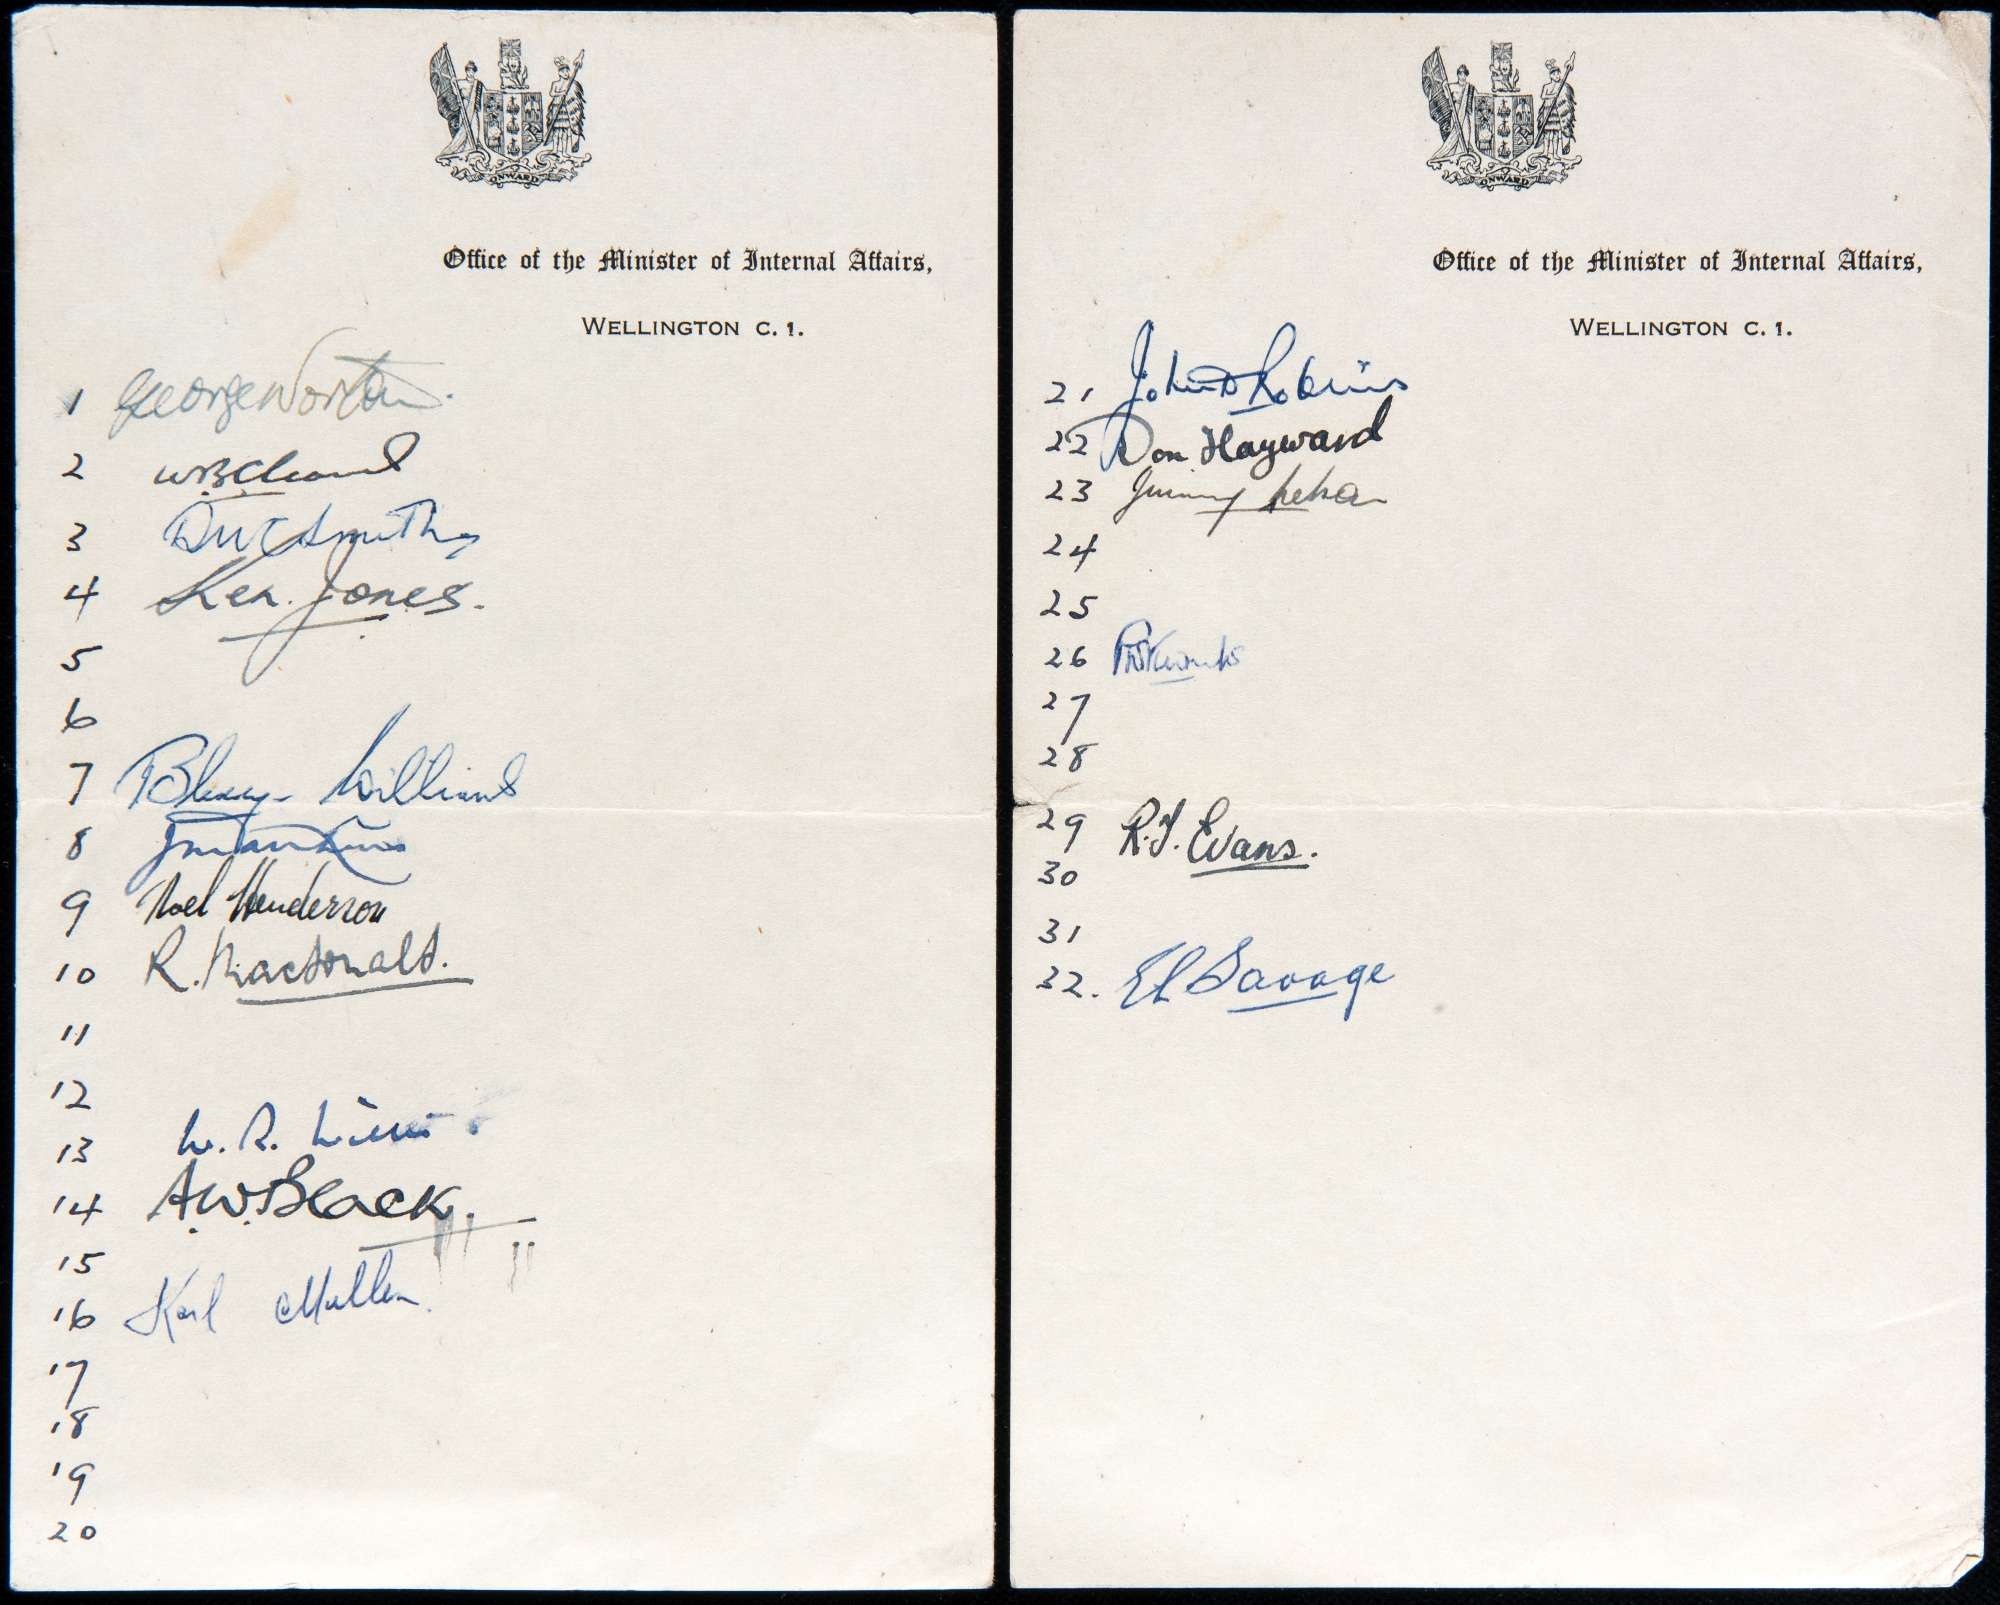 ONWARD
Office of the Minister of Internal Affairs,
WELLINGTON C. 1.
1 George Norton.
2 W.B. Cleaver
3 D W C Smith
4 Ken. Jones.
5
6
7 Bleddyn Williams
8
9 Noel Henderson
10 R. Macdonald.
11
12
13 W. R. Willis
14 A.W. Black.
15
16 Karl Mullen
17
18
19
20
ONWARD
Office of the Minister of Internal Affairs,
WELLINGTON C. 1.
21 John D Robins
22 Don Hayward
23 Jimmy Nelson
24
25
26
27
28
29 R.T. Evans.
30
31
32. E L Savage